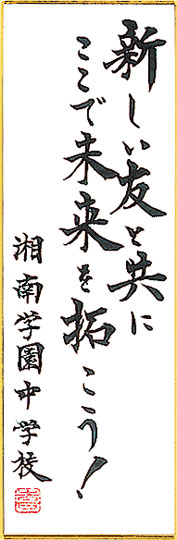 新しい友と共に
ここで未来を拓こう！
湘南学園中学校